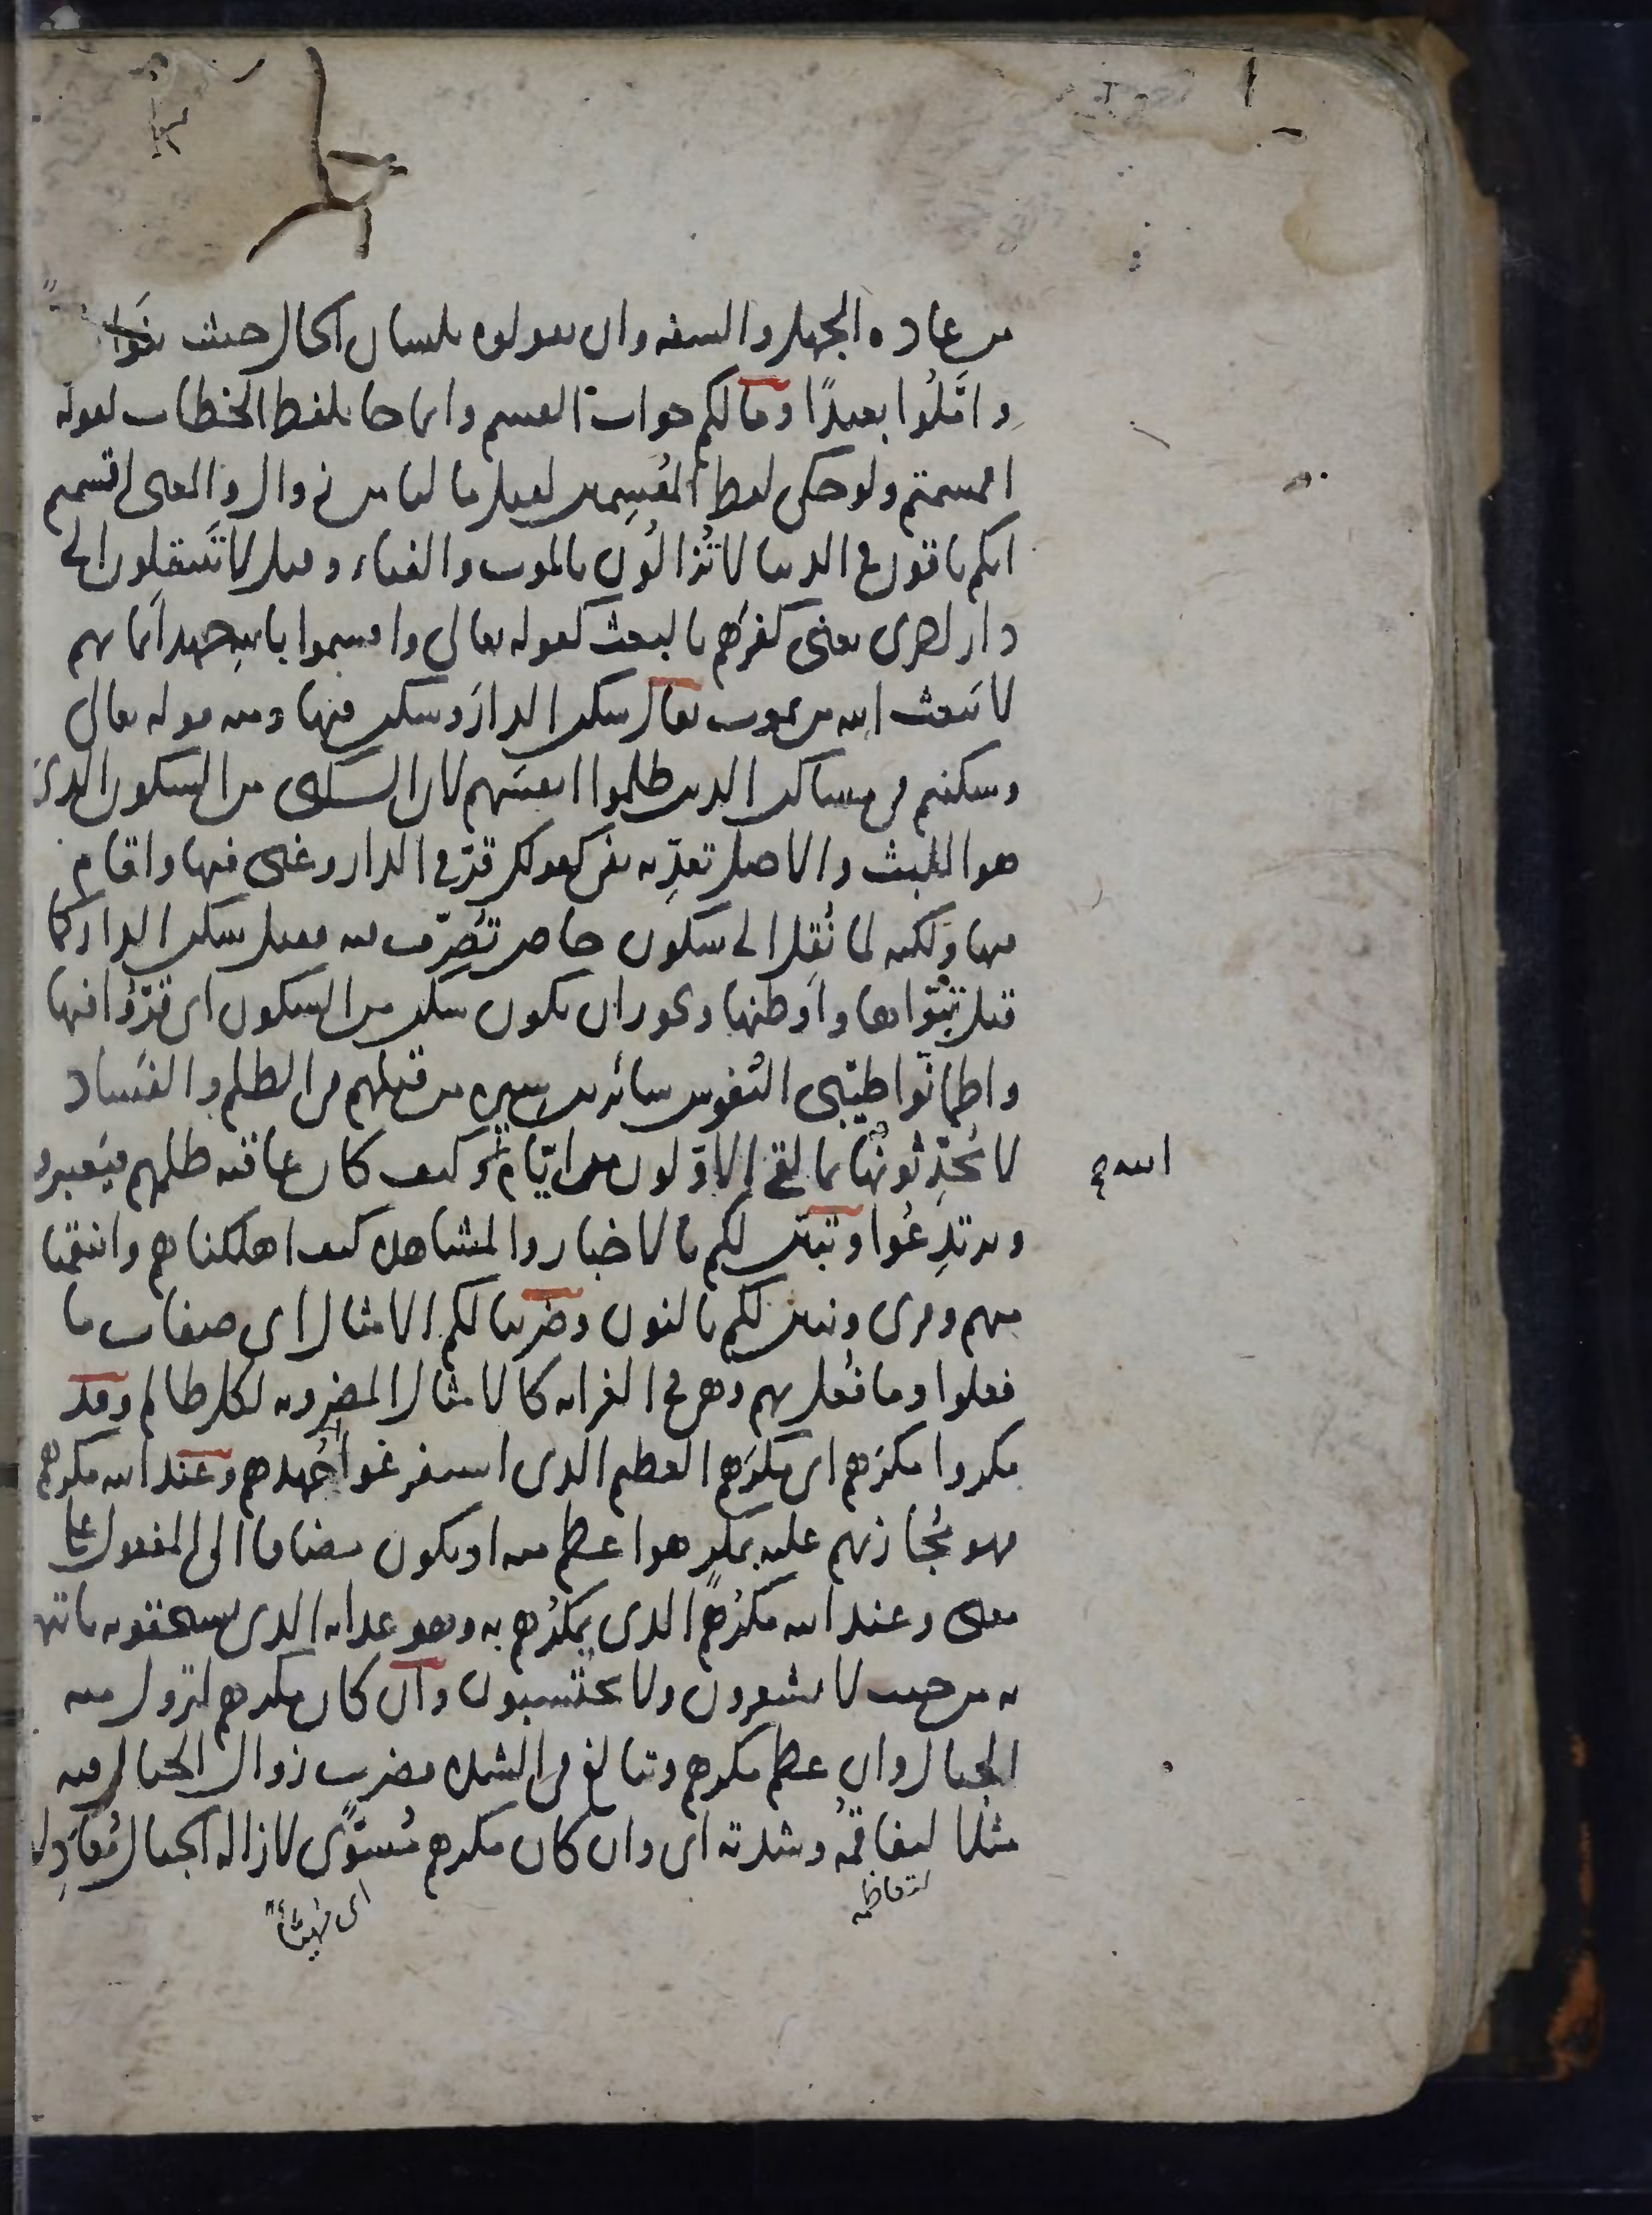 من عاده الجهل والسفه وان يقولوه بلسان الحال حيث بنوا
واملوا بعيدًا وما لكم جواب القسم وانما جا بلفظ الخطاب لقوله
اقسمتم ولو حكى لفظ المقسِمين لقيل ما لنا من زوال والمعنى اقسمتم
انكم باقون في الدنيا لا تُزالُون بالموت والفناء وقيل لا تنتقلون الى
دار اخرى يعنى كفرهم بالبعث كقوله تعالى واقسموا بالله جهد ايمانهم
لا يبعث الله من يموت يقال سكن الدارَ وسكن فيها ومنه قوله تعالى
وسكنتم في مساكن الذين ظلموا انفسهم لان السكنى من السكون الذى
هو اللبث والاصل تعدّيه بفى كقولك قرّ في الدار وغنى فيها واقام
فيها ولكنه لما نُقِل الى سكون خاص تُصرّف فيه فقيل سكن الدار كما
قيل تبوّاها واوطنها ويجوز ان يكون سكن من السكون اى قرّوا فيها
واطمانّوا طيّبى النفوس سائرين سيرة من قبلهم في الظلم والفساد
لا يُحدّثونها بما لقى الاوّلون من ايّام الله وكيف كان عاقبه ظلمهم فيعتبروا
ويرتدِعُوا وتبيّن لكم بالاخبار والمشاهده كيف اهلكناهم وانتقمنا
منهم وقرى ونبين لكم بالنون وضربنا لكم الامثال اى صفات ما
فعلوا وما فُعل بهم وهى في الغرابه كالامثال المضروبه لكل ظالم وقد
مكروا مكرَهم اى مكرَهم العظيم الذى استفرغوا فيه جُهدهم وعند الله مكرهم
فهو مُجازيهم عليه بمكرٍ هو اعظم منه او يكون مضافا الى المفعول على
معنى وعند الله مكرُهم الذى يمكرُهم به وهو عذابه الذى يستحقونه ياتيهم
به من حيث لا يشعرون ولا يحتسبون وان كان مكرهم لتزول منه
الجبال وان عظم مكرهم وتبالغ في الشده فضرب زوال الجبال منه
مثلا لتفاقمه وشدته اى وان كان مكرهم مُسوًّى لازاله الجبال مُعَدا لذلك
لتعاظمه
اى مُهيّئًا